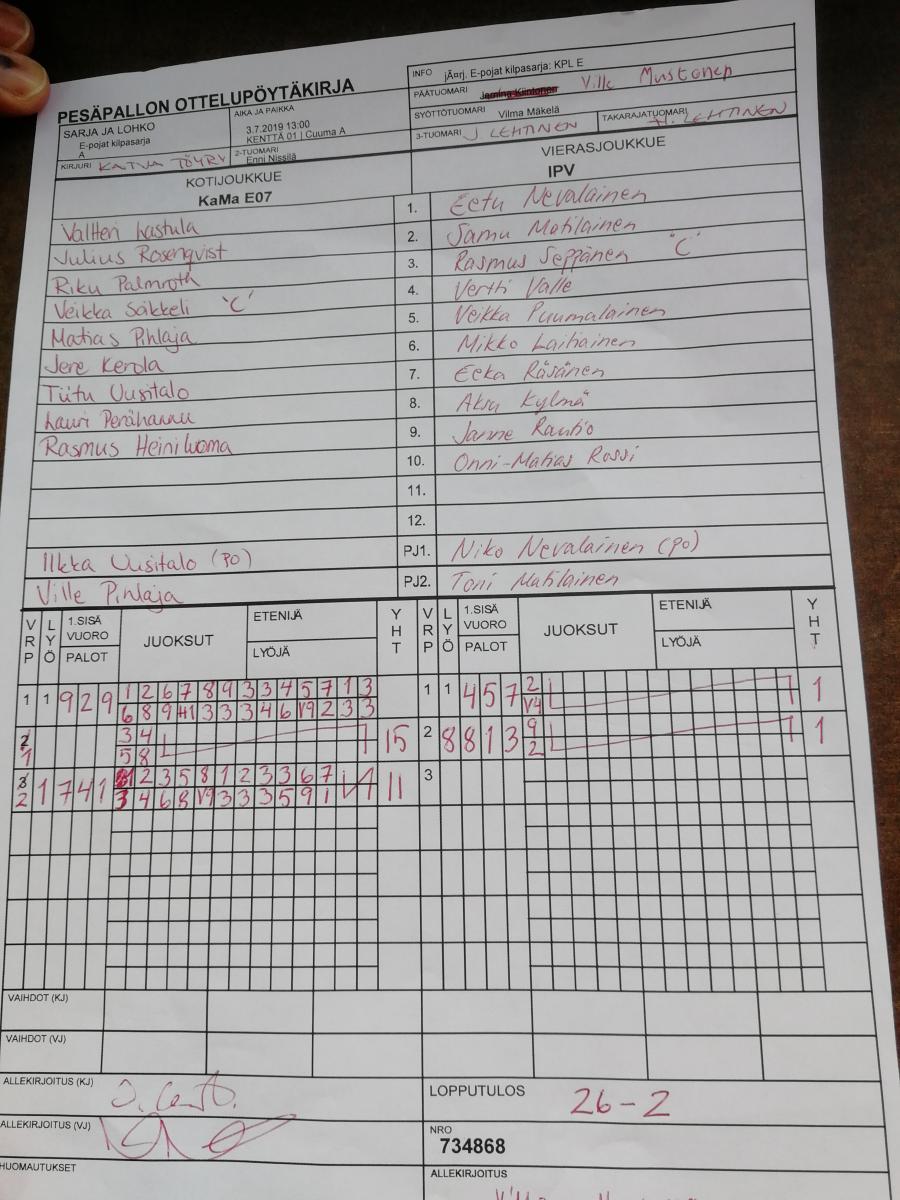 PESÄPALLON OTTELUPÖYTÄKIRJA
INFO jÃ¤rj. E-pojat kilpasarja: KPL E
PÄÄTUOMARI Ville Mustonen
SARJA JA LOHKO
E-pojat kilpasarja
A
AIKA JA PAIKKA
3.7.2019 13:00
KENTTÄ 01 | Cuuma A
SYÖTTÖTUOMARI Vilma Mäkelä
KIRJURI KATJA TÖYRY
2-TUOMARI
Enni Nissilä
3-TUOMARI J LEHTINEN
TAKARAJATUOMARI H. LEHTINEN
KOTIJOUKKUE
KaMa E07
VIERASJOUKKUE
IPV
Valtteri Lastula 1. Eetu Nevalainen
Julius Rosenqvist 2. Samu Matilainen
Riku Palmroth 3. Rasmus Seppänen "C"
Veikka Säikkeli "C" 4. Vertti Valle
Matias Pihlaja 5. Veikka Puumalainen
Jere Kerola 6. Mikko Laitiainen
Tiitu Uusitalo 7. Eeka Räsänen
Lauri Perähannu 8. Aksu Kylmä
Rasmus Heiniluoma 9. Janne Rautio
10. Onni-Matias Rossi
11.
12.
Ilkka Uusitalo (PO) PJ1. Niko Nevalainen (PO)
Ville Pihlaja PJ2. Toni Matilainen
VRP LYÖ 1.SISÄ VUORO PALOT JUOKSUT ETENIJÄ LYÖJÄ YHT VRP LYÖ 1.SISÄ VUORO PALOT JUOKSUT ETENIJÄ LYÖJÄ YHT
1 1 9 2 9 1 2 6 7 8 9 3 3 4 5 7 1 3
6 8 9 3 3 3 4 6 V9 2 3 3
1 1 4 5 7 2 1
V4
1 3 4 15
5 8
2 8 8 1 3 9 1
2
2 1 7 4 1 2 3 5 8 1 2 3 3 6 7 11
3 4 6 8 V9 3 3 3 5 9 1
3
VAIHDOT (KJ)
VAIHDOT (VJ)
ALLEKIRJOITUS (KJ)
LOPPUTULOS 26-2
ALLEKIRJOITUS (VJ)
NRO
734868
HUOMAUTUKSET
ALLEKIRJOITUS